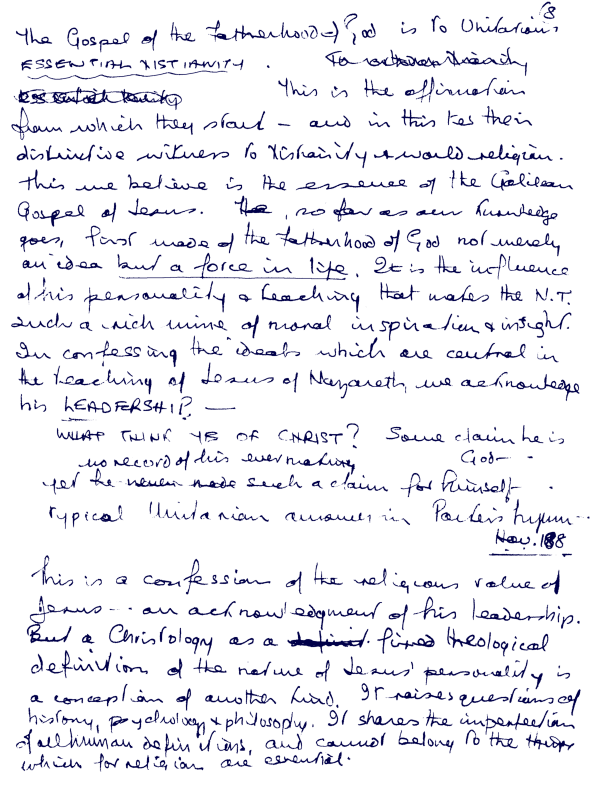 18
The Gospel of the Fatherhood of God is to Unitarians
ESSENTIAL XSTIANITY.
This is the affirmation
from which they start – and in this lies their
distinctive witness to Xstianity & world religion.
This we believe is the essence of the Galilean
Gospel of Jesus. He, so far as our knowledge
goes, first made of the Fatherhood of God not merely
an idea but a force in life. It is the influence
of his personality & teaching that makes the N.T.
such a rich mine of moral inspiration & insight.
In confessing the ideals which are central in
the teaching of Jesus of Nazareth, we acknowledge
his LEADERSHIP. —
WHAT THINK YE OF CHRIST? Some claim he is
God –
no record of his ever making
yet he never made such a claim for himself – .
Typical Unitarian answer in Parker's hymn ...
188
This is a confession of the religious value of
Jesus -- an acknowledgment of his leadership.
But a Christology as a fixed theological
definition of the nature of Jesus' personality is
a conception of another kind. It raises questions of
history, psychology & philosophy. It shares the imperfection
of all human definitions, and cannot belong to the things
which for religion are essential.